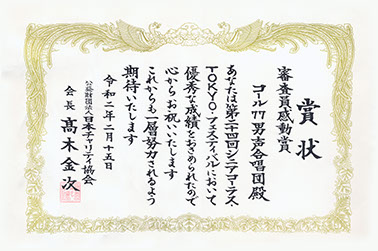 賞状
審査員感動賞
コール77男声合唱団殿
あなたは第二十四回シニアコーラス
TOKYOフェスティバルにおいて
優秀な成績をおさめられたので
心からお祝いいたします
これからも一層努力されるよう
期待いたします
令和二年二月十五日
公益財団法人日本チャリティ協会
会長 髙木金次